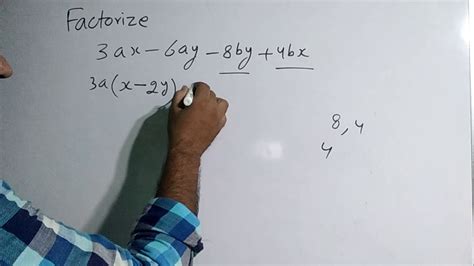 Factorize
3ax-6ay-8by+4bx
3a(x-2y)
8,4
4